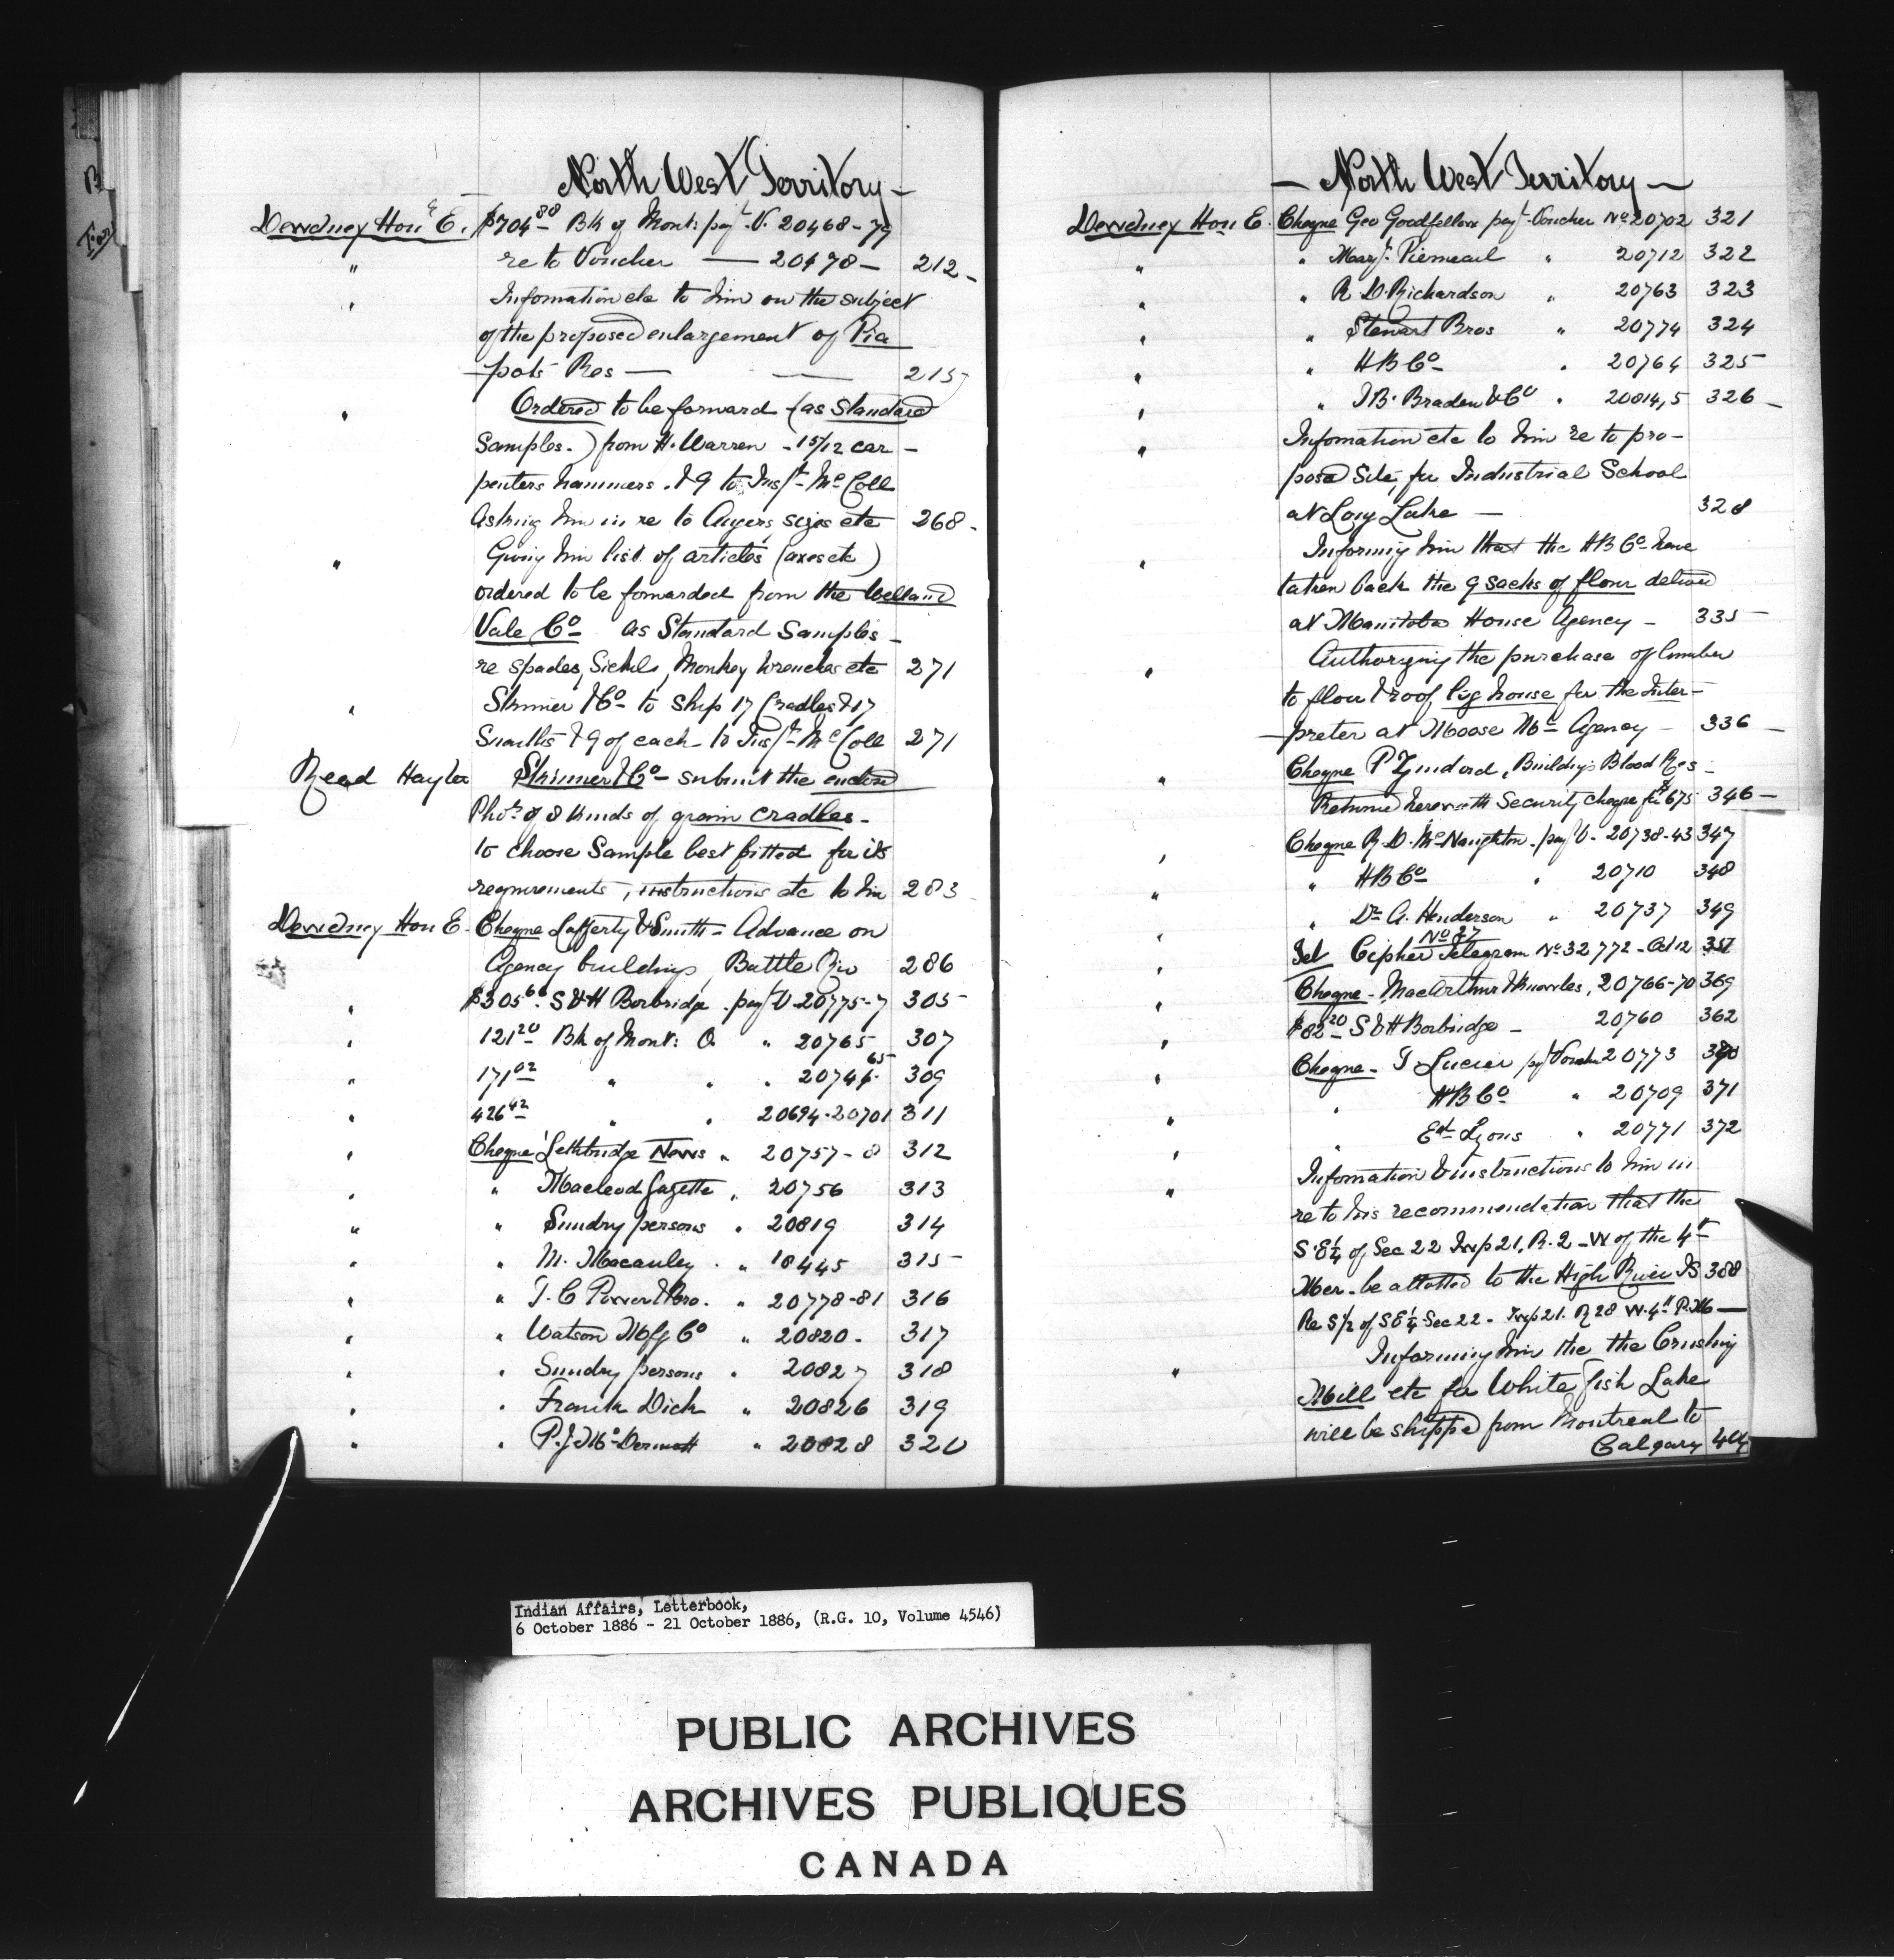 North West Territory
Dewdney Hon E. $704.88 Bk of Mont: payt V. 20468-79
" re to Voucher — 20478 — 212
" Information etc to him on the subject
of the proposed enlargement of Pia
pots Res — — 215
" Ordered to be forward (as Standard
Samples.) from H. Warren - 15/12 car -
penters hammers. & 9 to Inspt McColl
Asking him in re to Augers, sizes etc 268
" Giving him list of articles (axes etc)
ordered to be forwarded from the Welland
Vale Co as Standard Samples —
re spades, Sickels, Monkey wrenches etc 271
" Skinner & Co to ship 17 Cradles & 17
Snaiths & 9 of each to Inspt McColl 271
Read Hayter Skinner & Co — submit the enclosed
Phots of 8 kinds of grain cradles —
to choose Sample best fitted for its
requirements, instructions etc to him 283
Dewdney Hon E. Cheque Lafferty & Smith — Advance on
Agency buildings Battle Riv 286
" $305.60 S & H Borbridge payt V. 20775-7 305
" 121.20 Bk of Mont: O. " 20765 307
65
" 171.02 " " " 20744 309
" 426.42 " " 20694-20701 311
" Cheque Lethbridge News " 20757-8 312
" " Macleod Gazette " 20756 313
" " Sundry persons " 20819 314
" " M. Macauley " 18445 315
" " T. C Power & Bro. " 20778-81 316
" " Watson Mfg Co " 20820 - 317
" " Sundry persons " 20827 318
" " Frank Dick " 20826 319
" " P. J. McDermott " 20828 320
— North West Territory —
Dewdney Hon E. Cheque Geo Goodfellow payt Voucher No 20702 321
" " " 20712 322
" " R. D. Richardson " 20763 323
" " Stewart Bros " 20774 324
" " H B Co " 20764 325
" " J B. Braden & Co " 20814,5 326
" Information etc to him re to pro-
posed Site, for Industrial School
at Long Lake — 328
" Informing him that the H B Co have
taken back the 9 sacks of flour delived
at Manitoba House Agency — 335
" Authorizing the purchase of lumber
to floor & roof log house for the Inter-
preter at Moose Mn Agency — 336
" Cheque , Buildings Blood Res —
Returned herewith Security cheque for $675 346
" Cheque R. D. McNaughton. payt V. 20738-43 347
" " H B Co " 20710 348
" " Dr A. Henderson " 20737 349
No 27
" Tel Cipher Telegram No 32772 - Oct 12 351
" Cheque - MacArthur & Knowles, 20766-70 369
" $82.20 S & H Borbridge — 20760 362
" Cheque - T Lucier payt Voucher 20773 370
" " H B Co " 20709 371
" " Ed Lyons " 20771 372
" Information & instructions to him in
re to his recommendation that the
S.E¼ of Sec 22 Twp 21, R. 2 - W of the 4th
Mer. be allotted to the High River IS 388
Re S½ of SE¼ Sec 22 - Twp 21. R 28 W. 4th P.M —
" Informing him the the Crushing
Mill etc for White fish Lake
will be shipped from Montreal to
Calgary 404
Indian Affairs, Letterbook,
6 October 1886 - 21 October 1886, (R.G. 10, Volume 4546)
PUBLIC ARCHIVES
ARCHIVES PUBLIQUES
CANADA